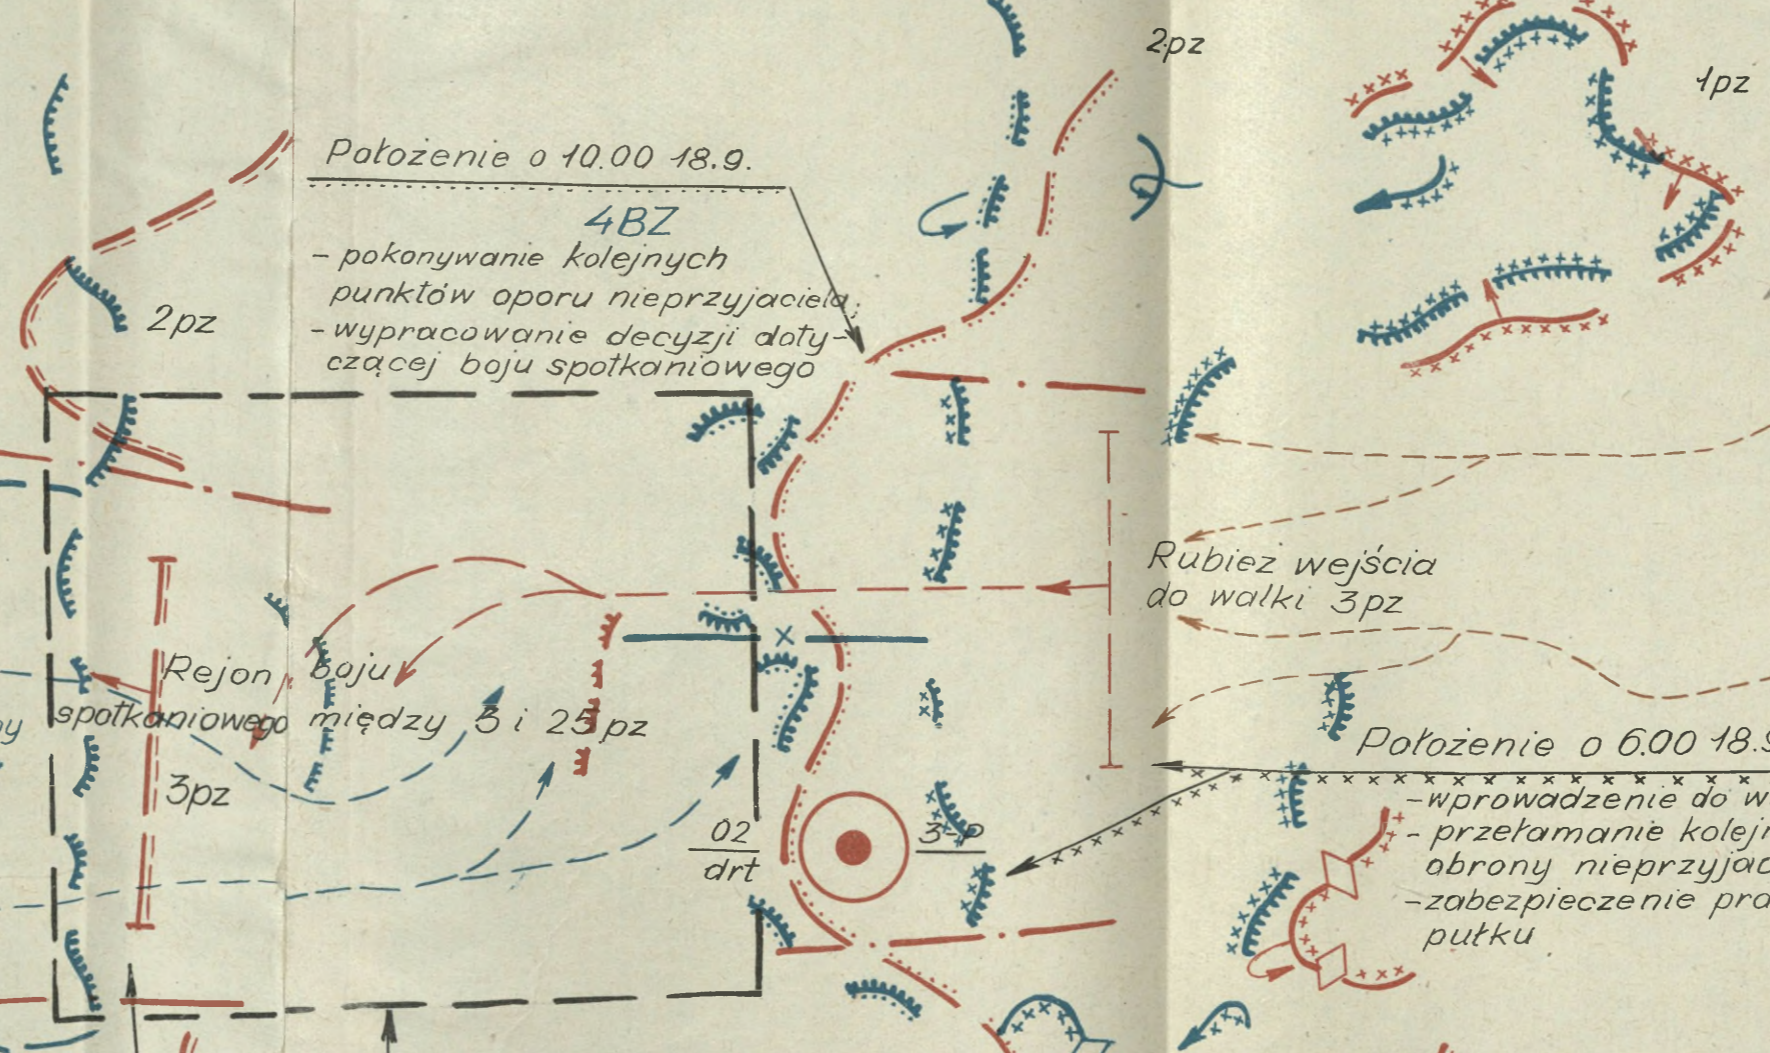 2pz
1pz
Położenie o 10.00 18.9.
4BZ
- pokonywanie kolejnych
punktów oporu nieprzyjaciela;
- wypracowanie decyzji doty-
czącej boju spotkaniowego
2pz
Rubież wejścia
do walki 3pz
Rejon boju
spotkaniowego między 3 i 25pz
3pz
Położenie o 6.00 18.9
- wprowadzenie do w
- przełamanie kolejn
obrony nieprzyjac
- zabezpieczenie pra
pułku
02
drt
3-P